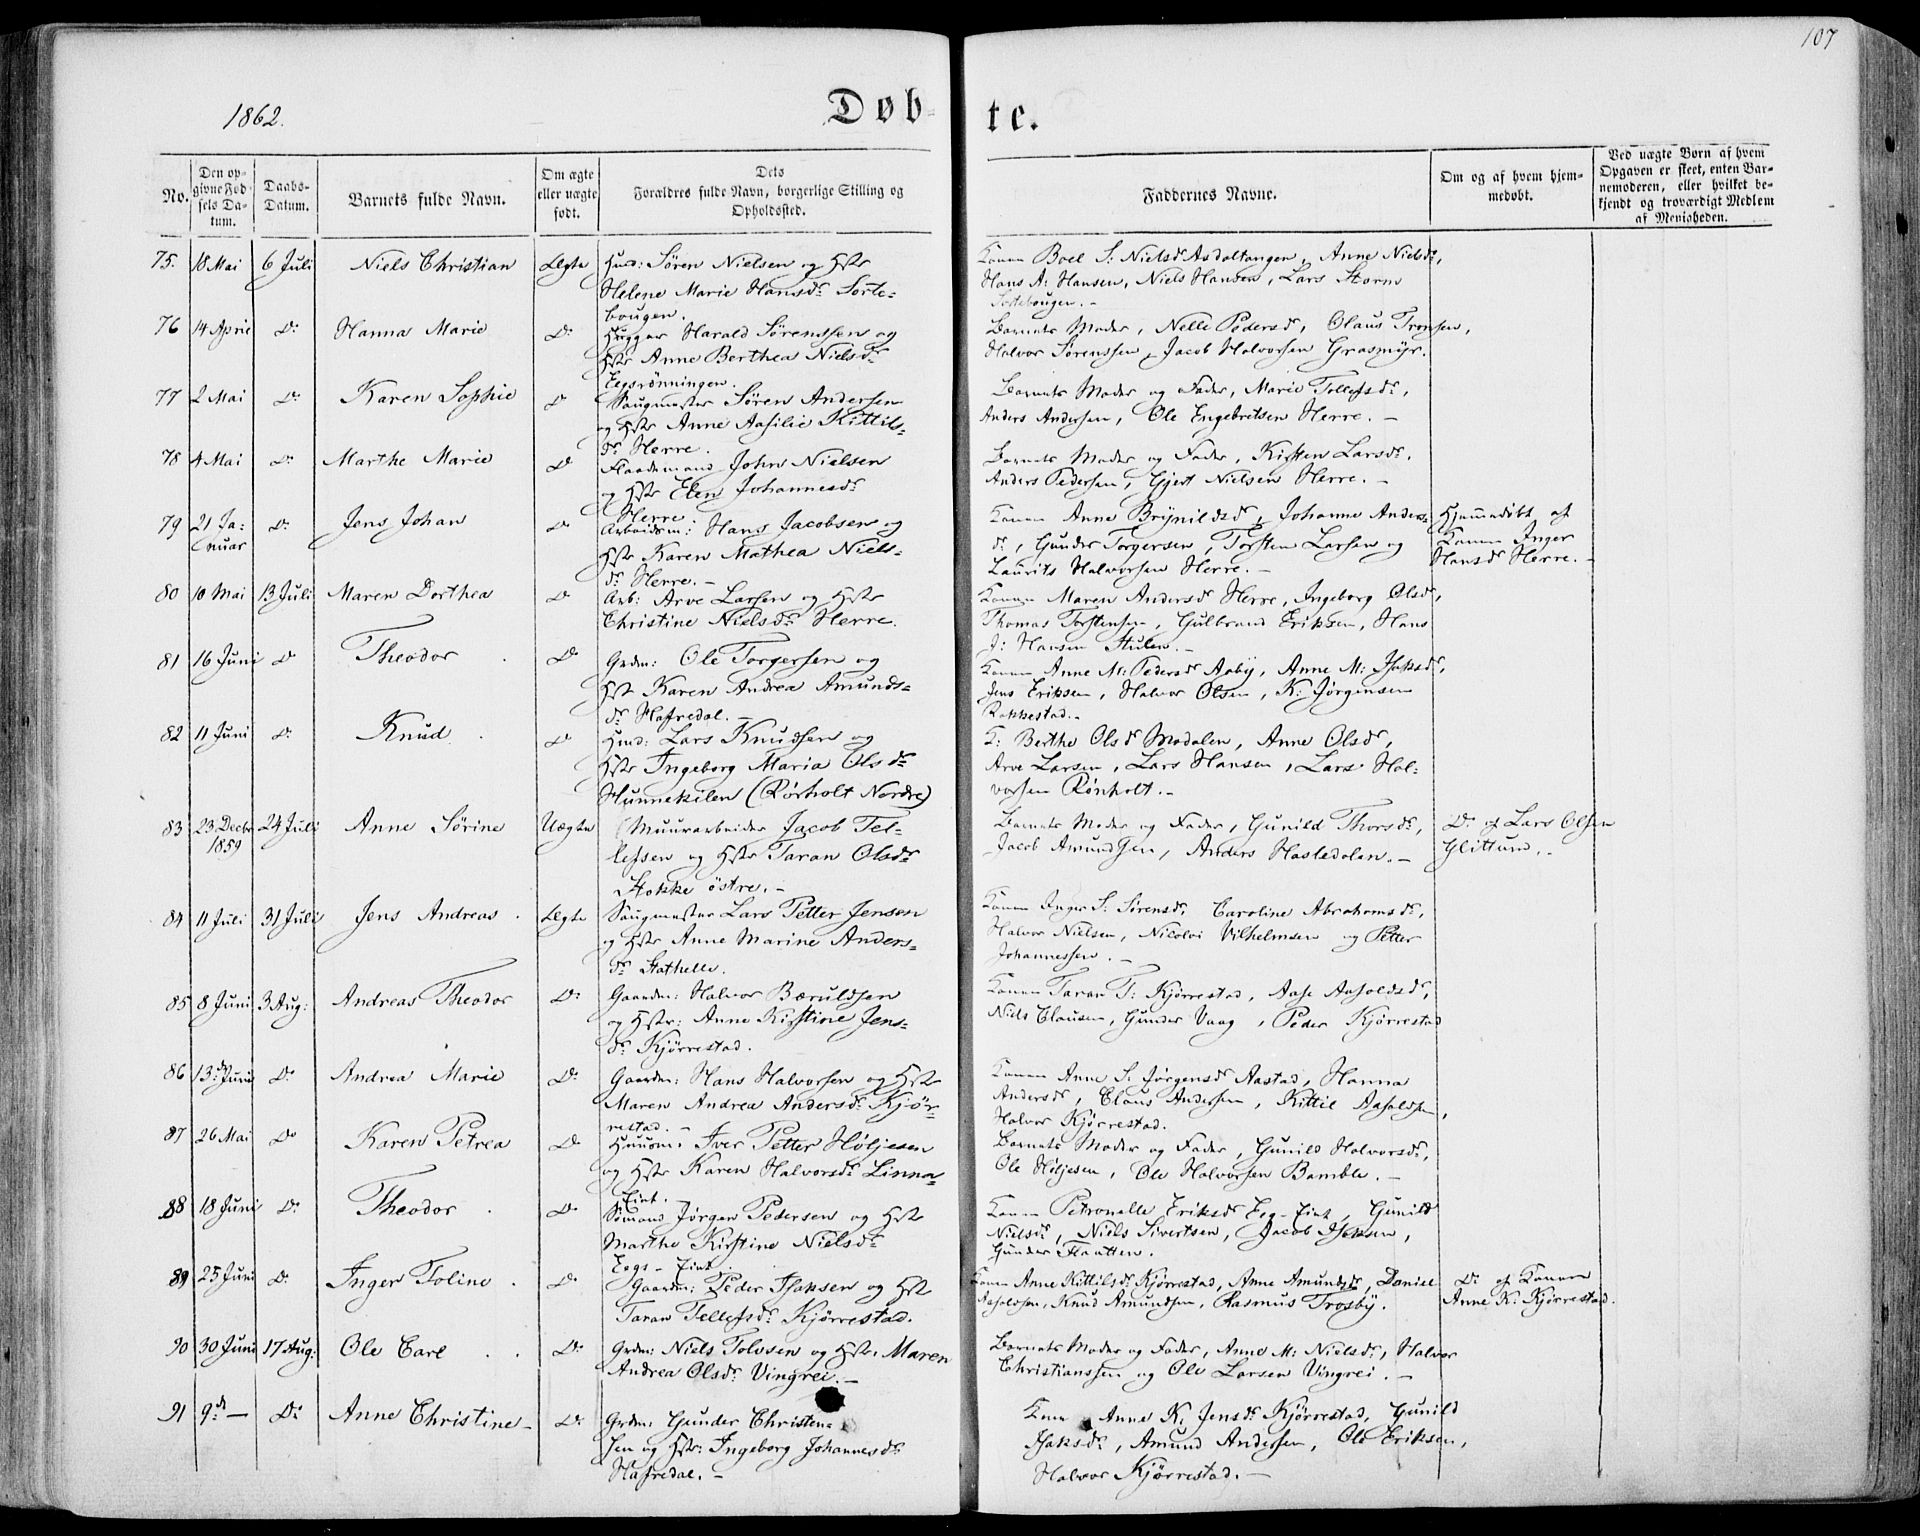 107
1862.
Døb-
te.
No.
Den op-
givne Fød-
sels Da-
tum.
Daabs-
Datum.
Barnets fulde Navn.
Om ægte
eller uægte
født.
Dets
Forældres fulde Navn, borgerlige Stilling og
Opholdssted.
Faddernes Navne.
Om og af hvem hjem-
medøbt.
Ved uægte Børn af hvem
Opgaven er skeet, enten Bar-
nemoderen, eller hvilket be-
kjendt og troværdigt Medlem
af Menigheden.
75. 18 Mai 6 Juli Niels Christian Ægte Husm: Søren Nielsen og Hstr
Helene Marie Hansdr Sorte-
bougen.
Konen Boel S. Nielsdr Asdaltangen, Anne Nielsdr,
Hans A: Hansen, Niels Hansen, Lars Storm
Sortebougen. -
76 14 April Do Hanna Marie Do Hugger Harald Sørenssen og
Hstr Anne Berthea Nielsdr
Eegsrønningen.
Barnets Moder, Nelle Pedersdr, Olaus Tronsen,
Halvor Sørenssen, Jacob Halvorsen Grasmyr.
77 2 Mai Do Karen Sophie Do Saugmester Søren Andersen
og Hstr Anne Aasilie Kittils-
dr Herre.
Barnets Moder og Fader, Marie Tollefsdr,
Anders Andersen, Ole Engebretsen Herre. -
78 4 Mai Do Marthe Marie Do Flaademand John Nielsen
og Hstr Elen Johannesdr
Herre
Barnets Moder og Fader, Kirsten Larsdr.
Anders Pedersen, Gjert Nielsen Herre. -
79 21 Ja-
nuar Do Jens Johan Do Arbeidsm: Hans Jacobsen og
Hstr Karen Mathea Niels-
dr Herre. -
Konen Anne Brynildsdr, Johanne Anders-
dr, Gunder Torgersen, Torsten Larsen og
Laurits Halvorsen Herre. -
Hjemmedøbt af
Konen Inger
Hansdr Herre. -
80 10 Mai 13 Juli Maren Dorthea Do Arb: Arve Larsen og Hstr
Christine Nielsdr Herre.
Konen Maren Andersdr Herre, Ingeborg Olsdr,
Thomas Torstensen, Gulbrand Eriksen, Hans
J: Hansen Stulen. -
81 16 Juni Do Theodor Do Grdm: Ole Torgersen og
Hst Karen Andrea Amunds-
dr Hafredal. -
Konen Anne M: Pedersdr Aaby, Anne M: Isaksdr,
Jens Eriksen, Halvor Olsen, K: Jørgensen
Rakkestad. -
82 11 Juni Do Knud Do Husm: Lars Knudsen og
Hstr Ingeborg Maria Olsdr
Hunnekilen (Rørholt Nordre)
K: Berthe Olsdr Modalen, Anne Olsdr,
Arve Larsen, Lars Hansen, Lars Hal-
vorsen Rønholt. -
83 23 Decbr
1859 24 Juli Anne Sørine Uægte (Muurarbeider Jacob Tel-
lefsen og Hstr Taran Olsdr
Stokke østre. -
Barnets Moder og Fader, Gunild Thorsdr,
Jacob Amundsen, Anders Hasledalen. -
Do af Lars Olsen
Glittum. -
84 11 Juli 31 Juli Jens Andreas Ægte Saugmester Lars Petter Jensen
og Hstr Anne Marine Anders-
dr Stathelle.
Konen Inger S: Sørensdr, Caroline Abrahamsdr,
Halvor Nielsen, Nicolai Vilhelmsen og Petter
Johannessen. -
85 8 Juni 3 Aug: Andreas Theodor Do Gaardm: Halvor Bæruldsen
og Hstr: Anne Kirstine Jens-
dr Kjørrestad.
Konen Taran T: Kjørrestad, Aase Aasoldsdr,
Niels Clausen, Gunder Vaag, Peder Kjørrestad
86 13de Juni Do Andrea Marie Do Gaardm: Hans Halvorsen og Hstr
Maren Andrea Andersdr Kjør-
restad. -
Konen Anne S. Jørgensdr Aastad, Hanna
Andersdr, Claus Andersen, Kittil Aasoldsen,
Halvor Kjørrestad.
87 26 Mai Do Karen Petrea Do Huusm: Iver Petter Høljesen
og Hstr Karen Halvorsdr Linna-
Eiet. -
Barnets Moder og Fader, Gunild Halvorsdr,
Ole Høljesen, Ole Halvorsen Bamble. -
88 18 Juni Do Theodor Do Sømand Jørgen Pedersen og Hst
Marthe Kirstine Nielsdr
Eegs-Eiet.
Konen Petronelle Eriksdr Eeg-Eiet, Gunild
Nielsdr, Niels Sivertsen, Jacob Isaksen,
Gunder Flaatten.
89 25 Juni Do Inger Toline Do Gaardm: Peder Isaksen og Hst
Taran Tellefsdr Kjørrestad.
Konen Anne Kittilsdr Kjørrestad, Anne Amundsdr, Daniel
Aasoldsen, Knud Amundsen, Rasmus Trosby.
Do af Konen
Anne K. Kjørrestad.
90 30 Juni 17 Aug: Ole Carl Do Grdm: Niels Tolvsen og Hstr. Maren
Andrea Olsdr Vingrei. -
Barnets Moder og Fader, Anne M: Nielsdr, Halvor
Christianssen og Ole Larsen Vingrei. -
91 9de - Do Anne Christine - Do Grdm: Gunder Christen-
sen og Hstr: Ingeborg Johannesdr
Hafredal. -
Anne K. Jensdr Kjørrestad, Gunild
Isaksdr, Amund Anderssen, Ole Eriksen,
Halvor Kjørrestad. -